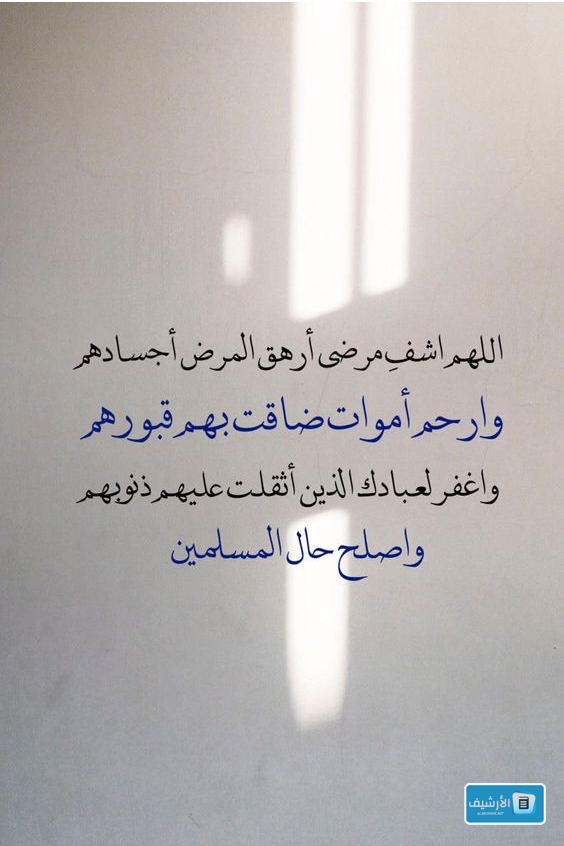 اللهم اشفِ مرضى أرهق المرض أجسادهم
وارحم أموات ضاقت بهم قبورهم
واغفر لعبادك الذين أثقلت عليهم ذنوبهم
واصلح حال المسلمين
الأرشيف